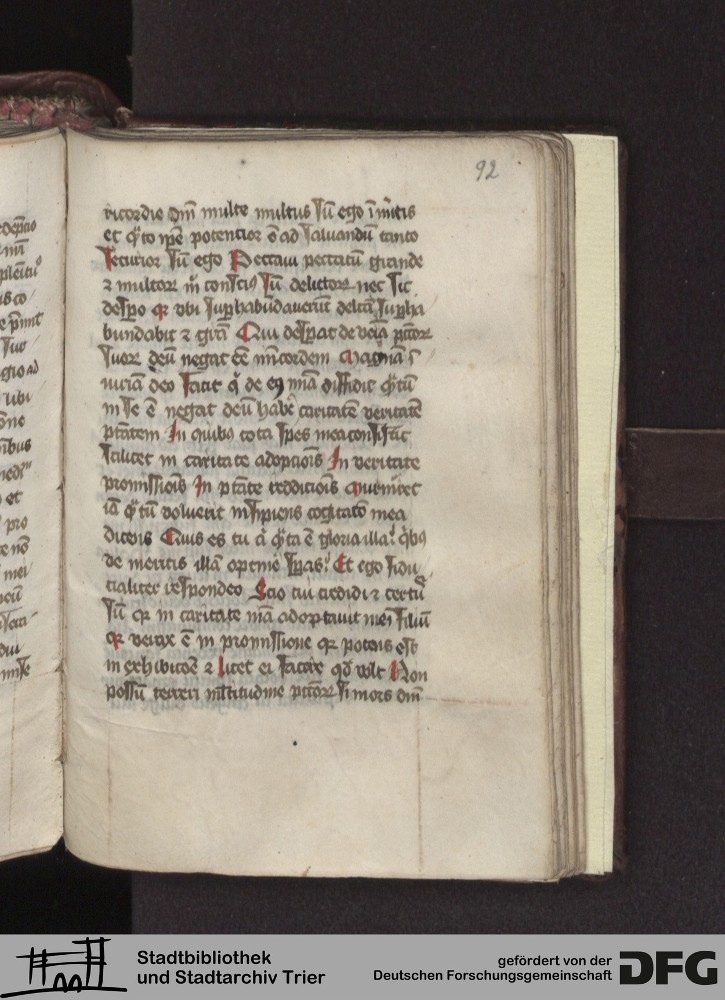 92
ricordie dn̄i multe multus sū ego ī m̄itis
et q̄to ip̄e potencior ē ad saluandū tanto
securior sū ego Peccaui peccatū grande
⁊ multoꝝ m̄ conscius sū delictoꝝ nec sic
desp̄o qꝛ vbi suꝑhabūdauerūt delc̄ta suꝑha
bundabit ⁊ gr̄a Qui desp̄at de venia pc̄coꝝ
suoꝝ deū negat eē mīcordem Magnam
iuriam deo facit q̇ de eꝰ mīa diffidit q̄tū
in se ē negat deū habē caritatē veritatē
p̄tatem In quibꝰ tota spes mea consistit
scilicet in caritate adopciōis In veritate
promissiōis In p̄tate reddiciōis Murmuret
iā q̄tū voluerit insipiens cogitatō mea
dicens Quis es tu a q̄ta ē gloria illa q̇bꝰ
de meritis illā optinē sp̄as Et ego fidu
cialiter respondeo Scio cui credidi ⁊ certꝰ
sū qꝛ in caritate mīa adoptauit mei filiū
qꝛ verax ē in promissione qꝛ potens est
in exhibicōe ⁊ licet ei facere qd̄ vult Non
possū terreri m̄ltitudine pc̄coꝝ si mors dn̄i
Stadtbibliothek
und Stadtarchiv Trier
gefördert von der
Deutschen Forschungsgemeinschaft
DFG